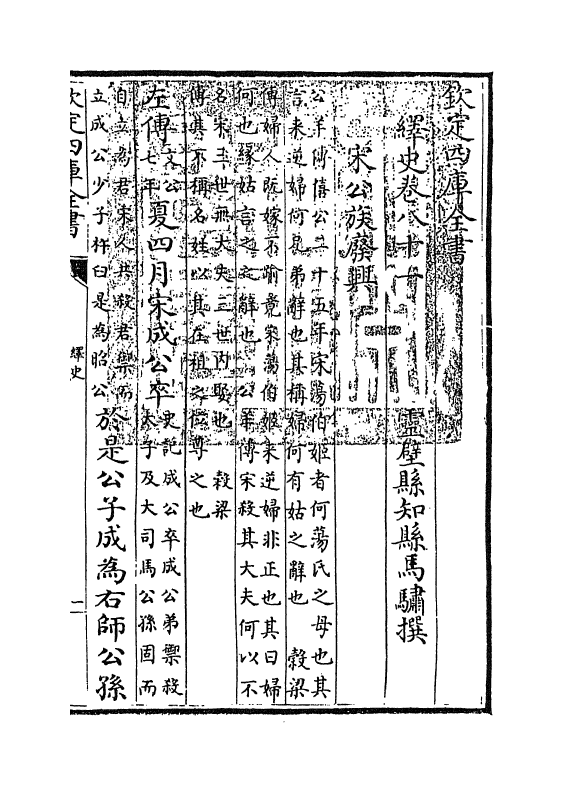 欽定四庫全書
繹史卷八十一 靈壁縣知縣馬驌撰
宋公族廢興
公羊傳僖公二十五年宋蕩伯姬者何蕩氏之母也其
言来逆婦何兄弟辭也其稱婦何有姑之辭也 穀梁
傳婦人既嫁不踰竟宋蕩伯姬来逆婦非正也其曰婦
何也縁姑言之之辭也 公羊傳宋殺其大夫何以不
名宋三世無大夫三世内娶也 榖梁
傳其不稱名姓以其在祖之位尊之也
左傳文公七年夏四月宋成公卒史記成公卒成公弟禦殺太子及大司馬公孫固而
自立為君宋人共殺君禦而立成公少子杵臼是為昭公於是公子成為右師公孫
欽定四庫全書
繹史
二